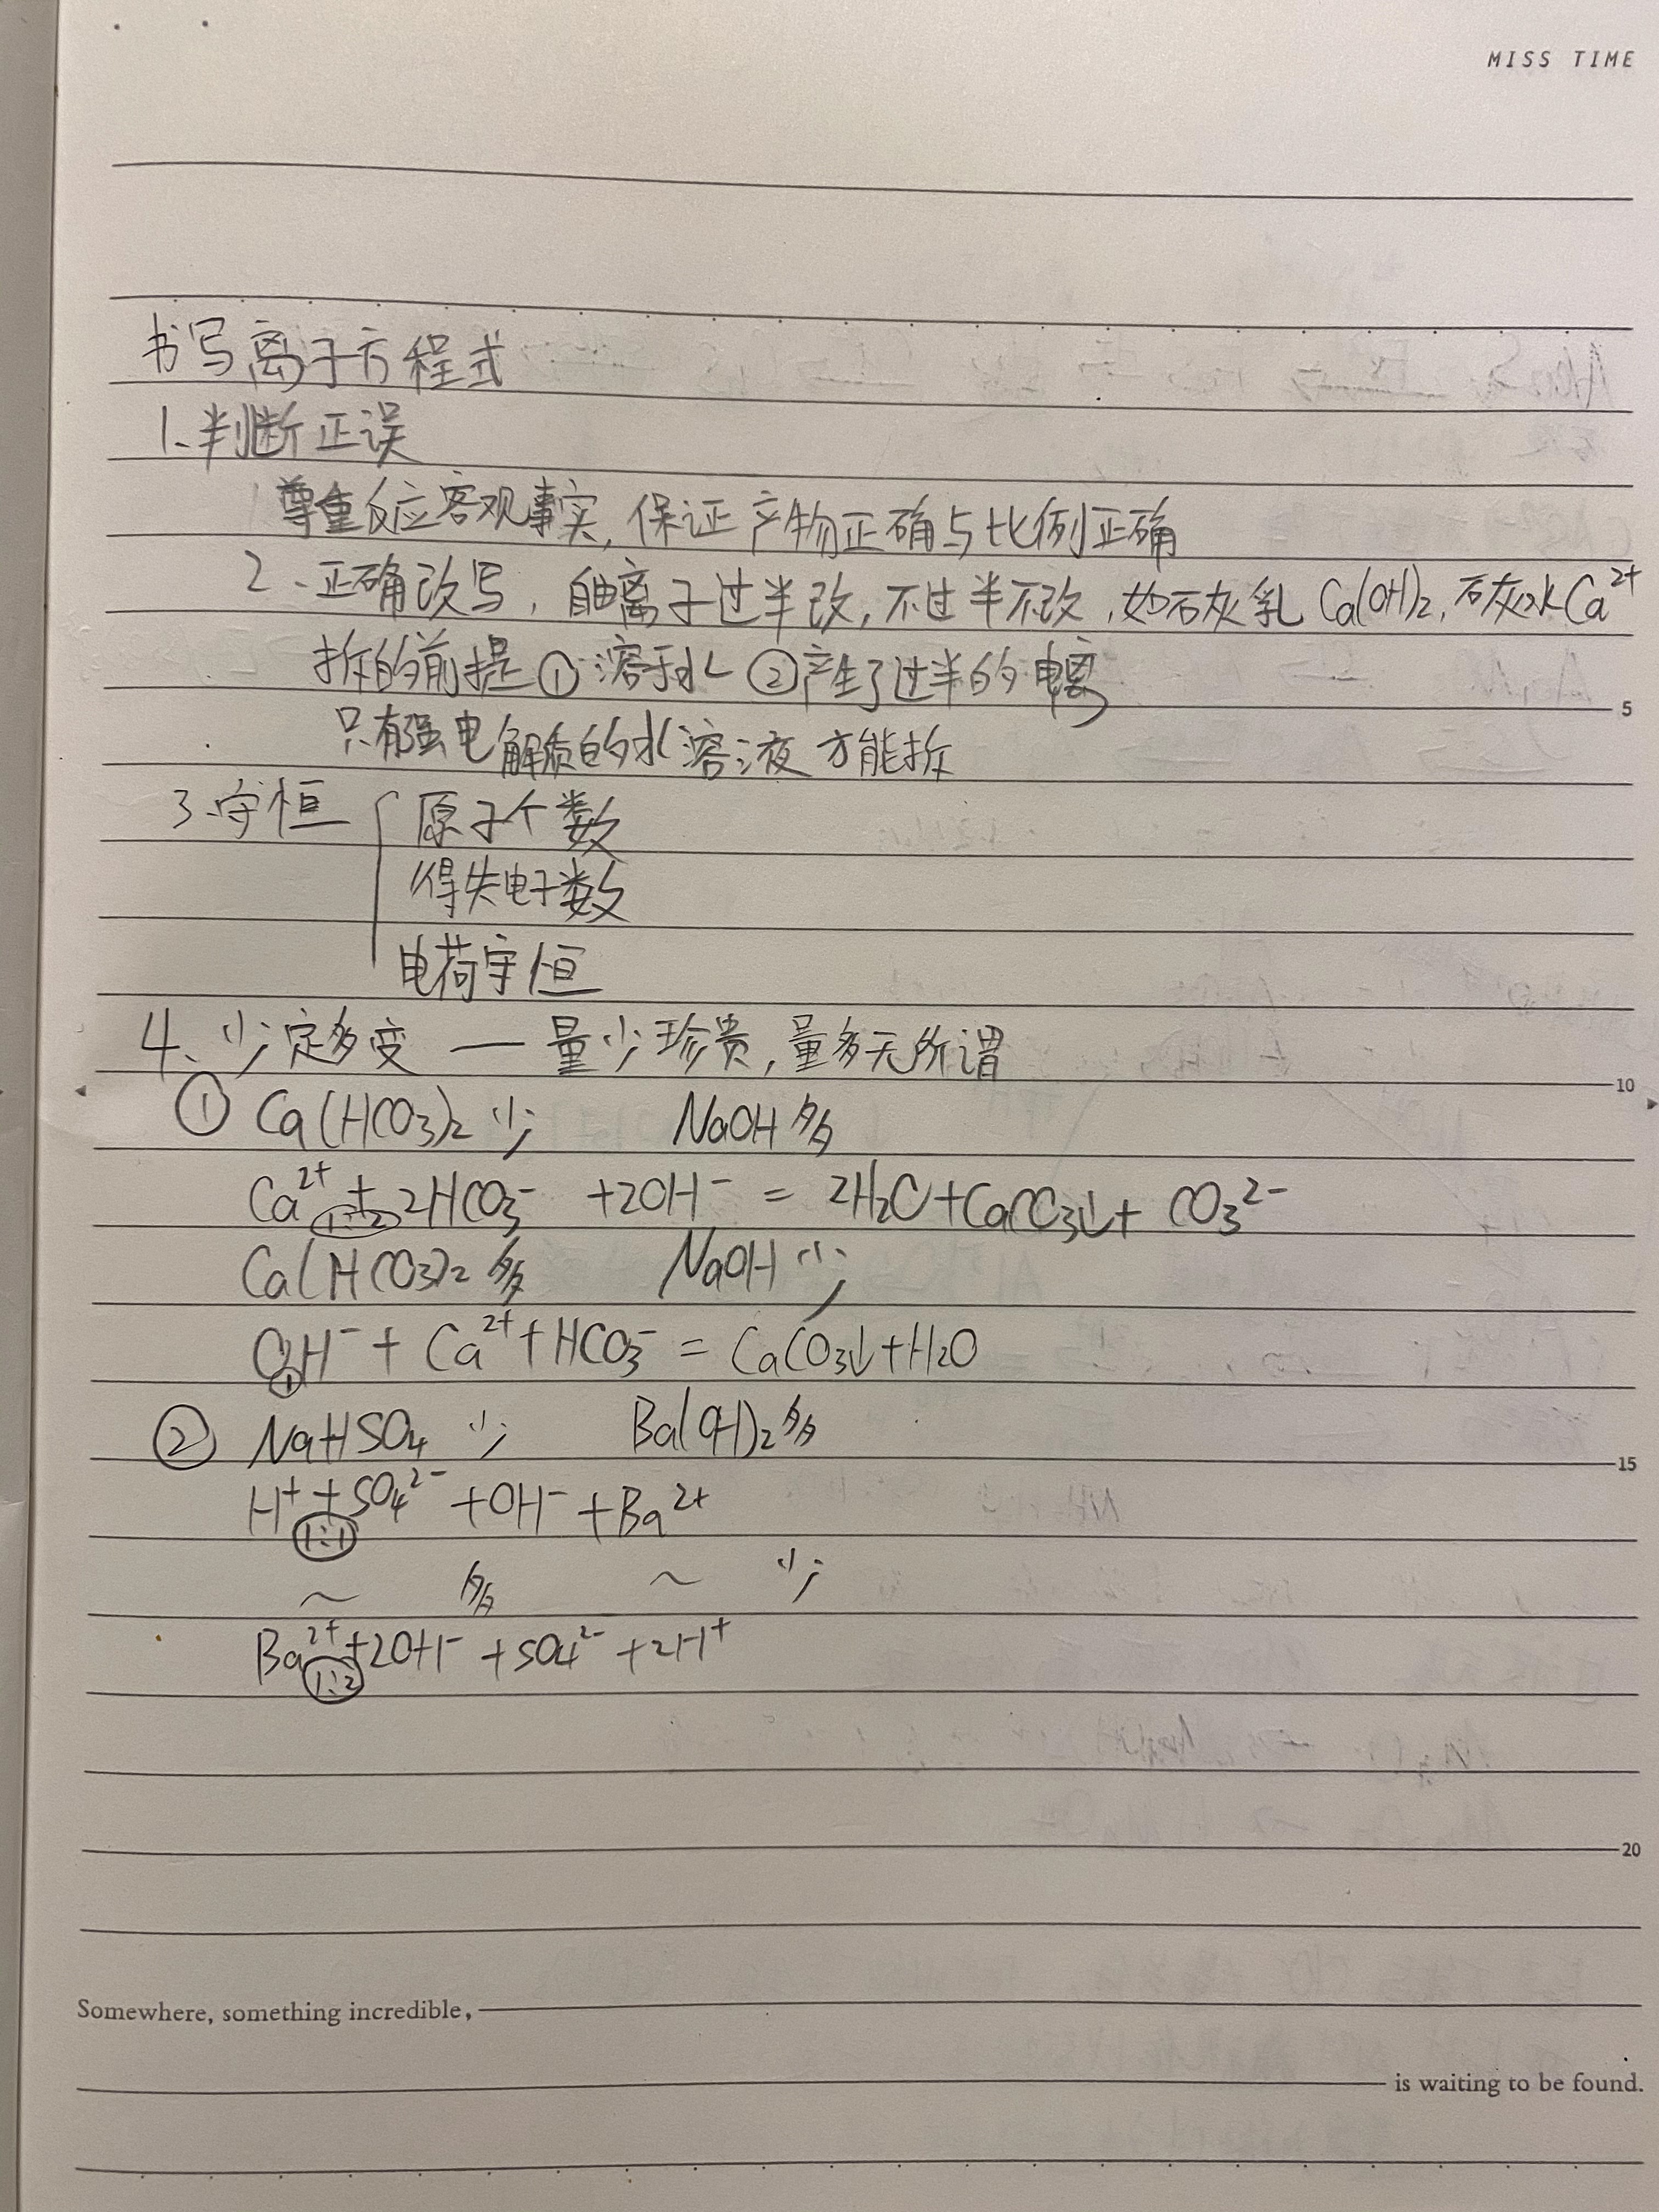 MISS TIME
书写离子方程式
1、判断正误
尊重反应客观事实,保证产物正确与比例正确
2、正确改写,自由离子过半改,不过半不改,如石灰乳 Ca(OH)₂,石灰水 Ca²⁺
拆的前提 ① 溶于水 ② 产生了过半的电离
只有强电解质的水溶液方能拆
3、守恒 { 原子个数
得失电子数
电荷守恒
5
4、少定多变 — 量少珍贵,量多无所谓
10
① Ca(HCO₃)₂ 少 NaOH 多
Ca²⁺ + 2HCO₃⁻ + 2OH⁻ = 2H₂O + CaCO₃↓ + CO₃²⁻
1:2
Ca(HCO₃)₂ 多 NaOH 少
OH⁻ + Ca²⁺ + HCO₃⁻ = CaCO₃↓ + H₂O
1
② NaHSO₄ 少 Ba(OH)₂ 多
15
H⁺ + SO₄²⁻ + OH⁻ + Ba²⁺
1:1
~ 多 ~ 少
Ba²⁺ + 2OH⁻ + SO₄²⁻ + 2H⁺
1:2
20
Somewhere, something incredible,
is waiting to be found.